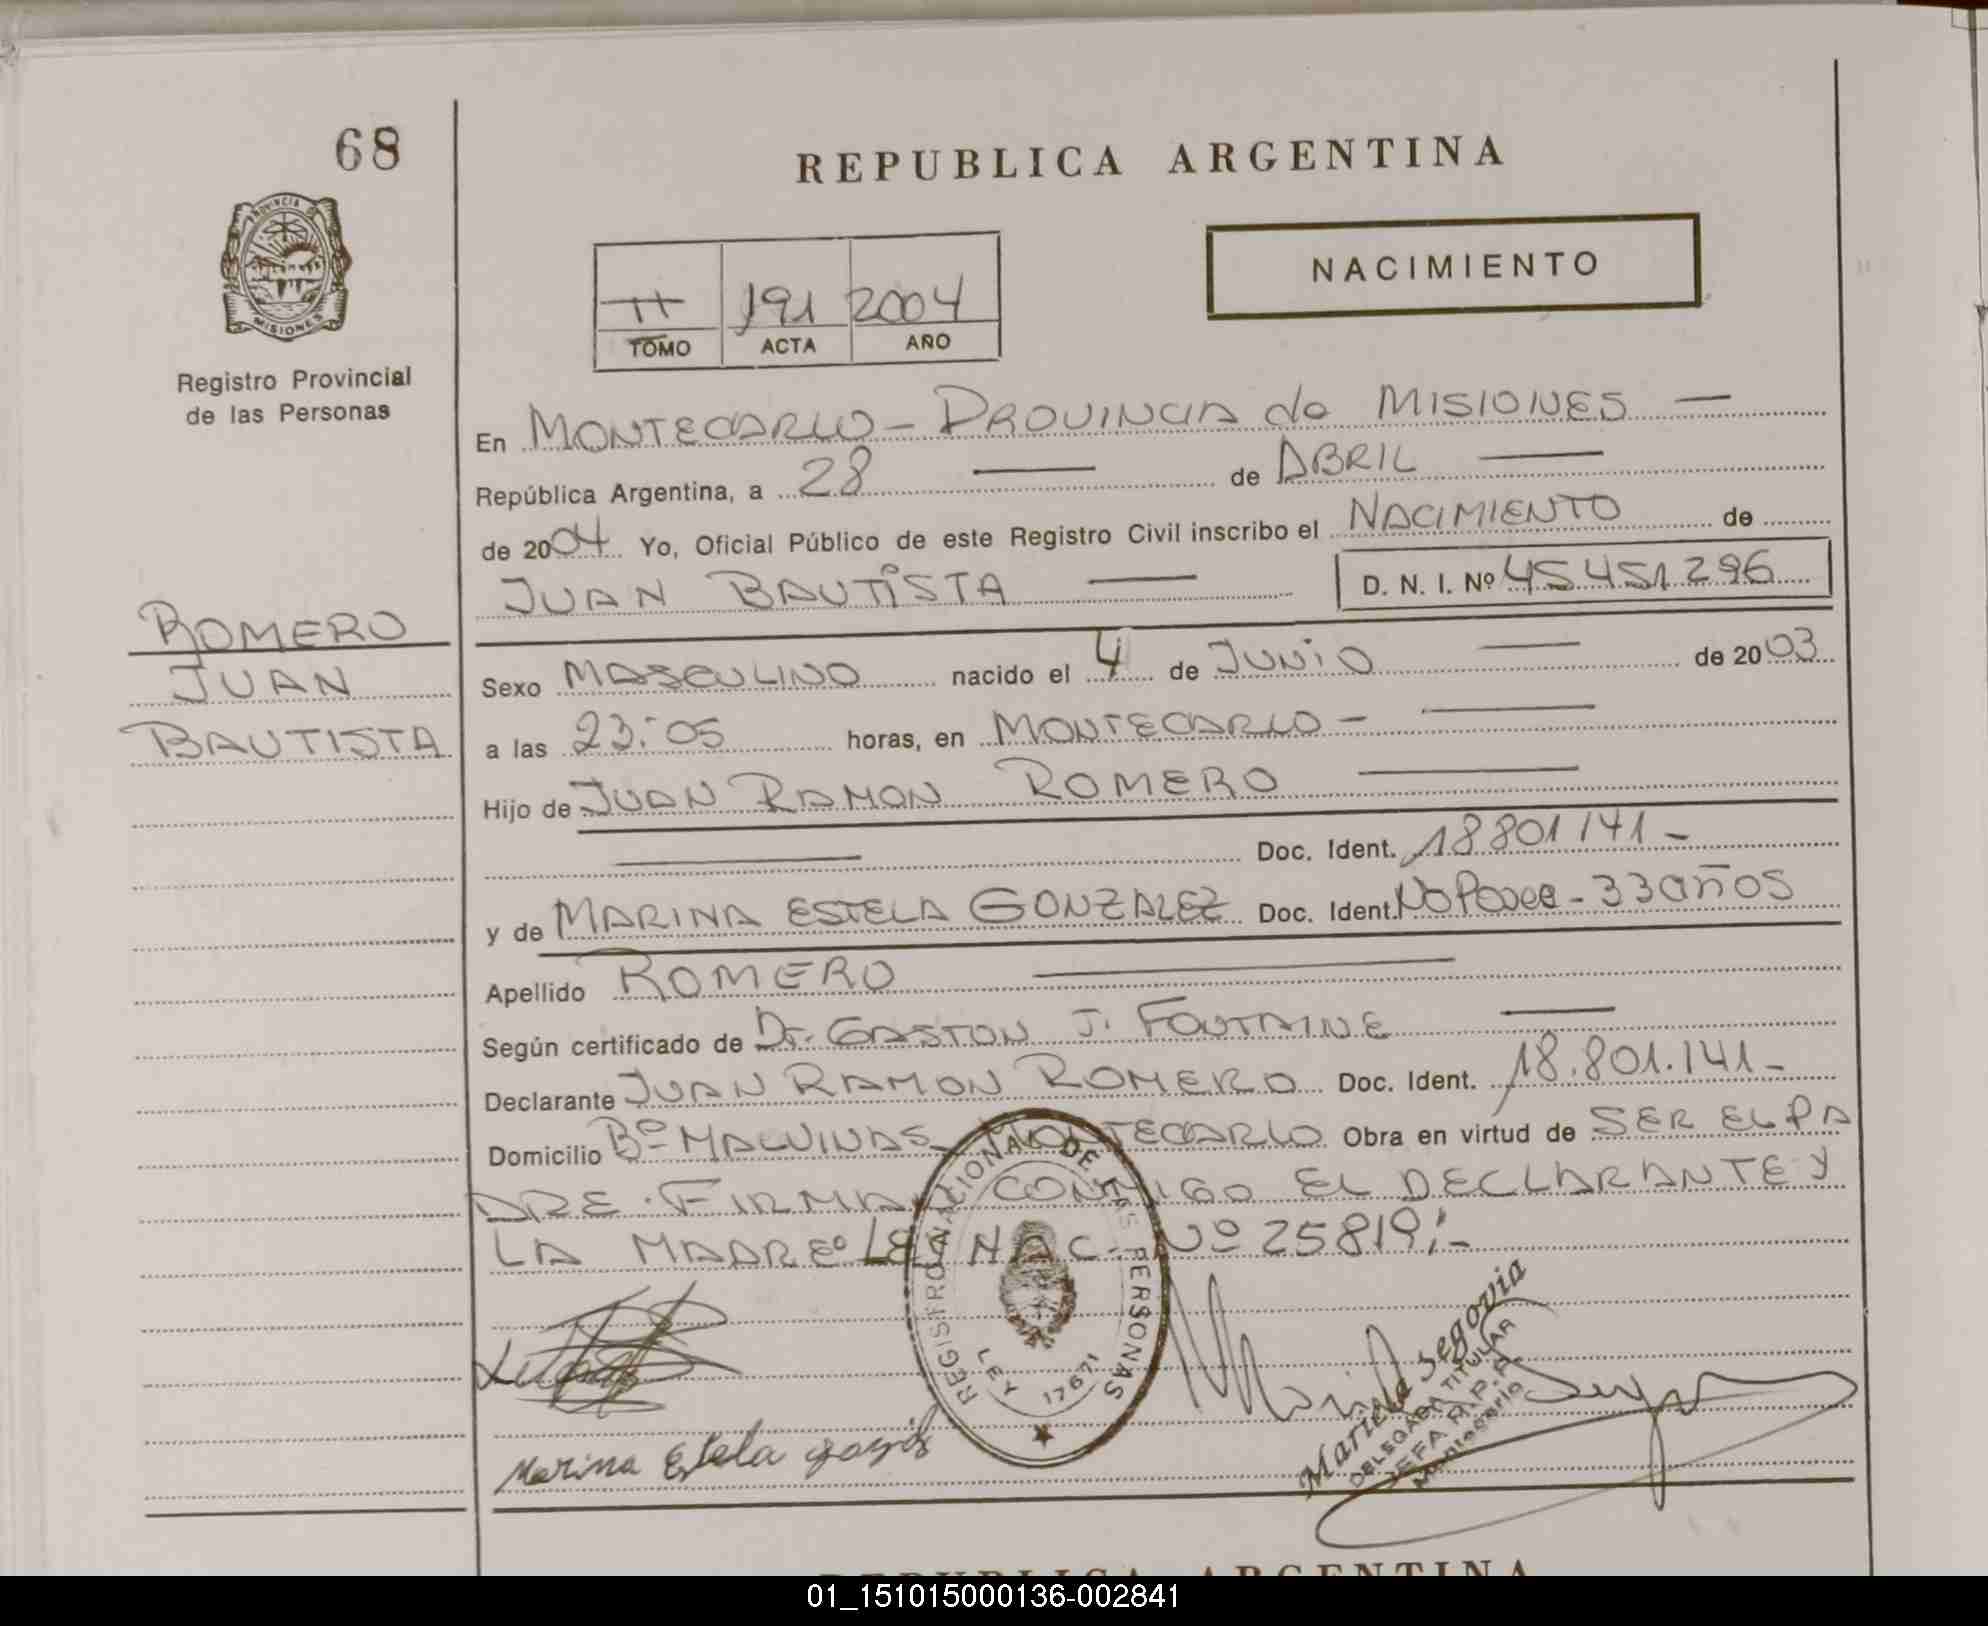 68
REPUBLICA ARGENTINA
PROVINCIA DE
MISIONES
Registro Provincial
de las Personas
NACIMIENTO
II 191 2004
TOMO ACTA AÑO
En MONTECARLO - PROVINCIA de MISIONES —
República Argentina, a 28 — de ABRIL —
de 2004 Yo, Oficial Público de este Registro Civil inscribo el NACIMIENTO de
JUAN BAUTISTA — D. N. I. Nº 45.451.296
ROMERO
JUAN
BAUTISTA
Sexo MASCULINO nacido el 4 de JUNIO — de 2003
a las 23:05 horas, en MONTECARLO - —
Hijo de JUAN RAMON ROMERO —
— Doc. Ident. 18801141 -
y de MARINA ESTELA GONZALEZ Doc. Ident. No Posee - 33 años
Apellido ROMERO —
Según certificado de Dr. GASTON J. FONTAINE —
Declarante JUAN RAMON ROMERO Doc. Ident. 18.801.141 -
Domicilio Bº MALVINAS - MONTECARLO Obra en virtud de SER EL PA
DRE. FIRMAN CONMIGO EL DECLARANTE Y
LA MADRE. NAC. Nº 25819
REGISTRO NACIONAL DE LAS PERSONAS
LEY 17671
Marina Estela
Mariela Segovia
DELEGADA TITULAR
JEFA R.P.P.
Montecarlo
REPUBLICA ARGENTINA
01_151015000136-002841